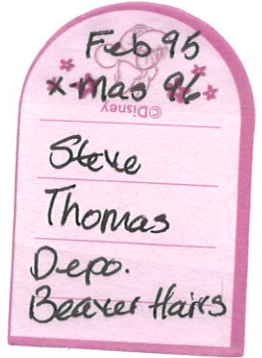 Feb 95
X-mas 96
©Disney
Steve
Thomas
Depo.
Beaver Hairs